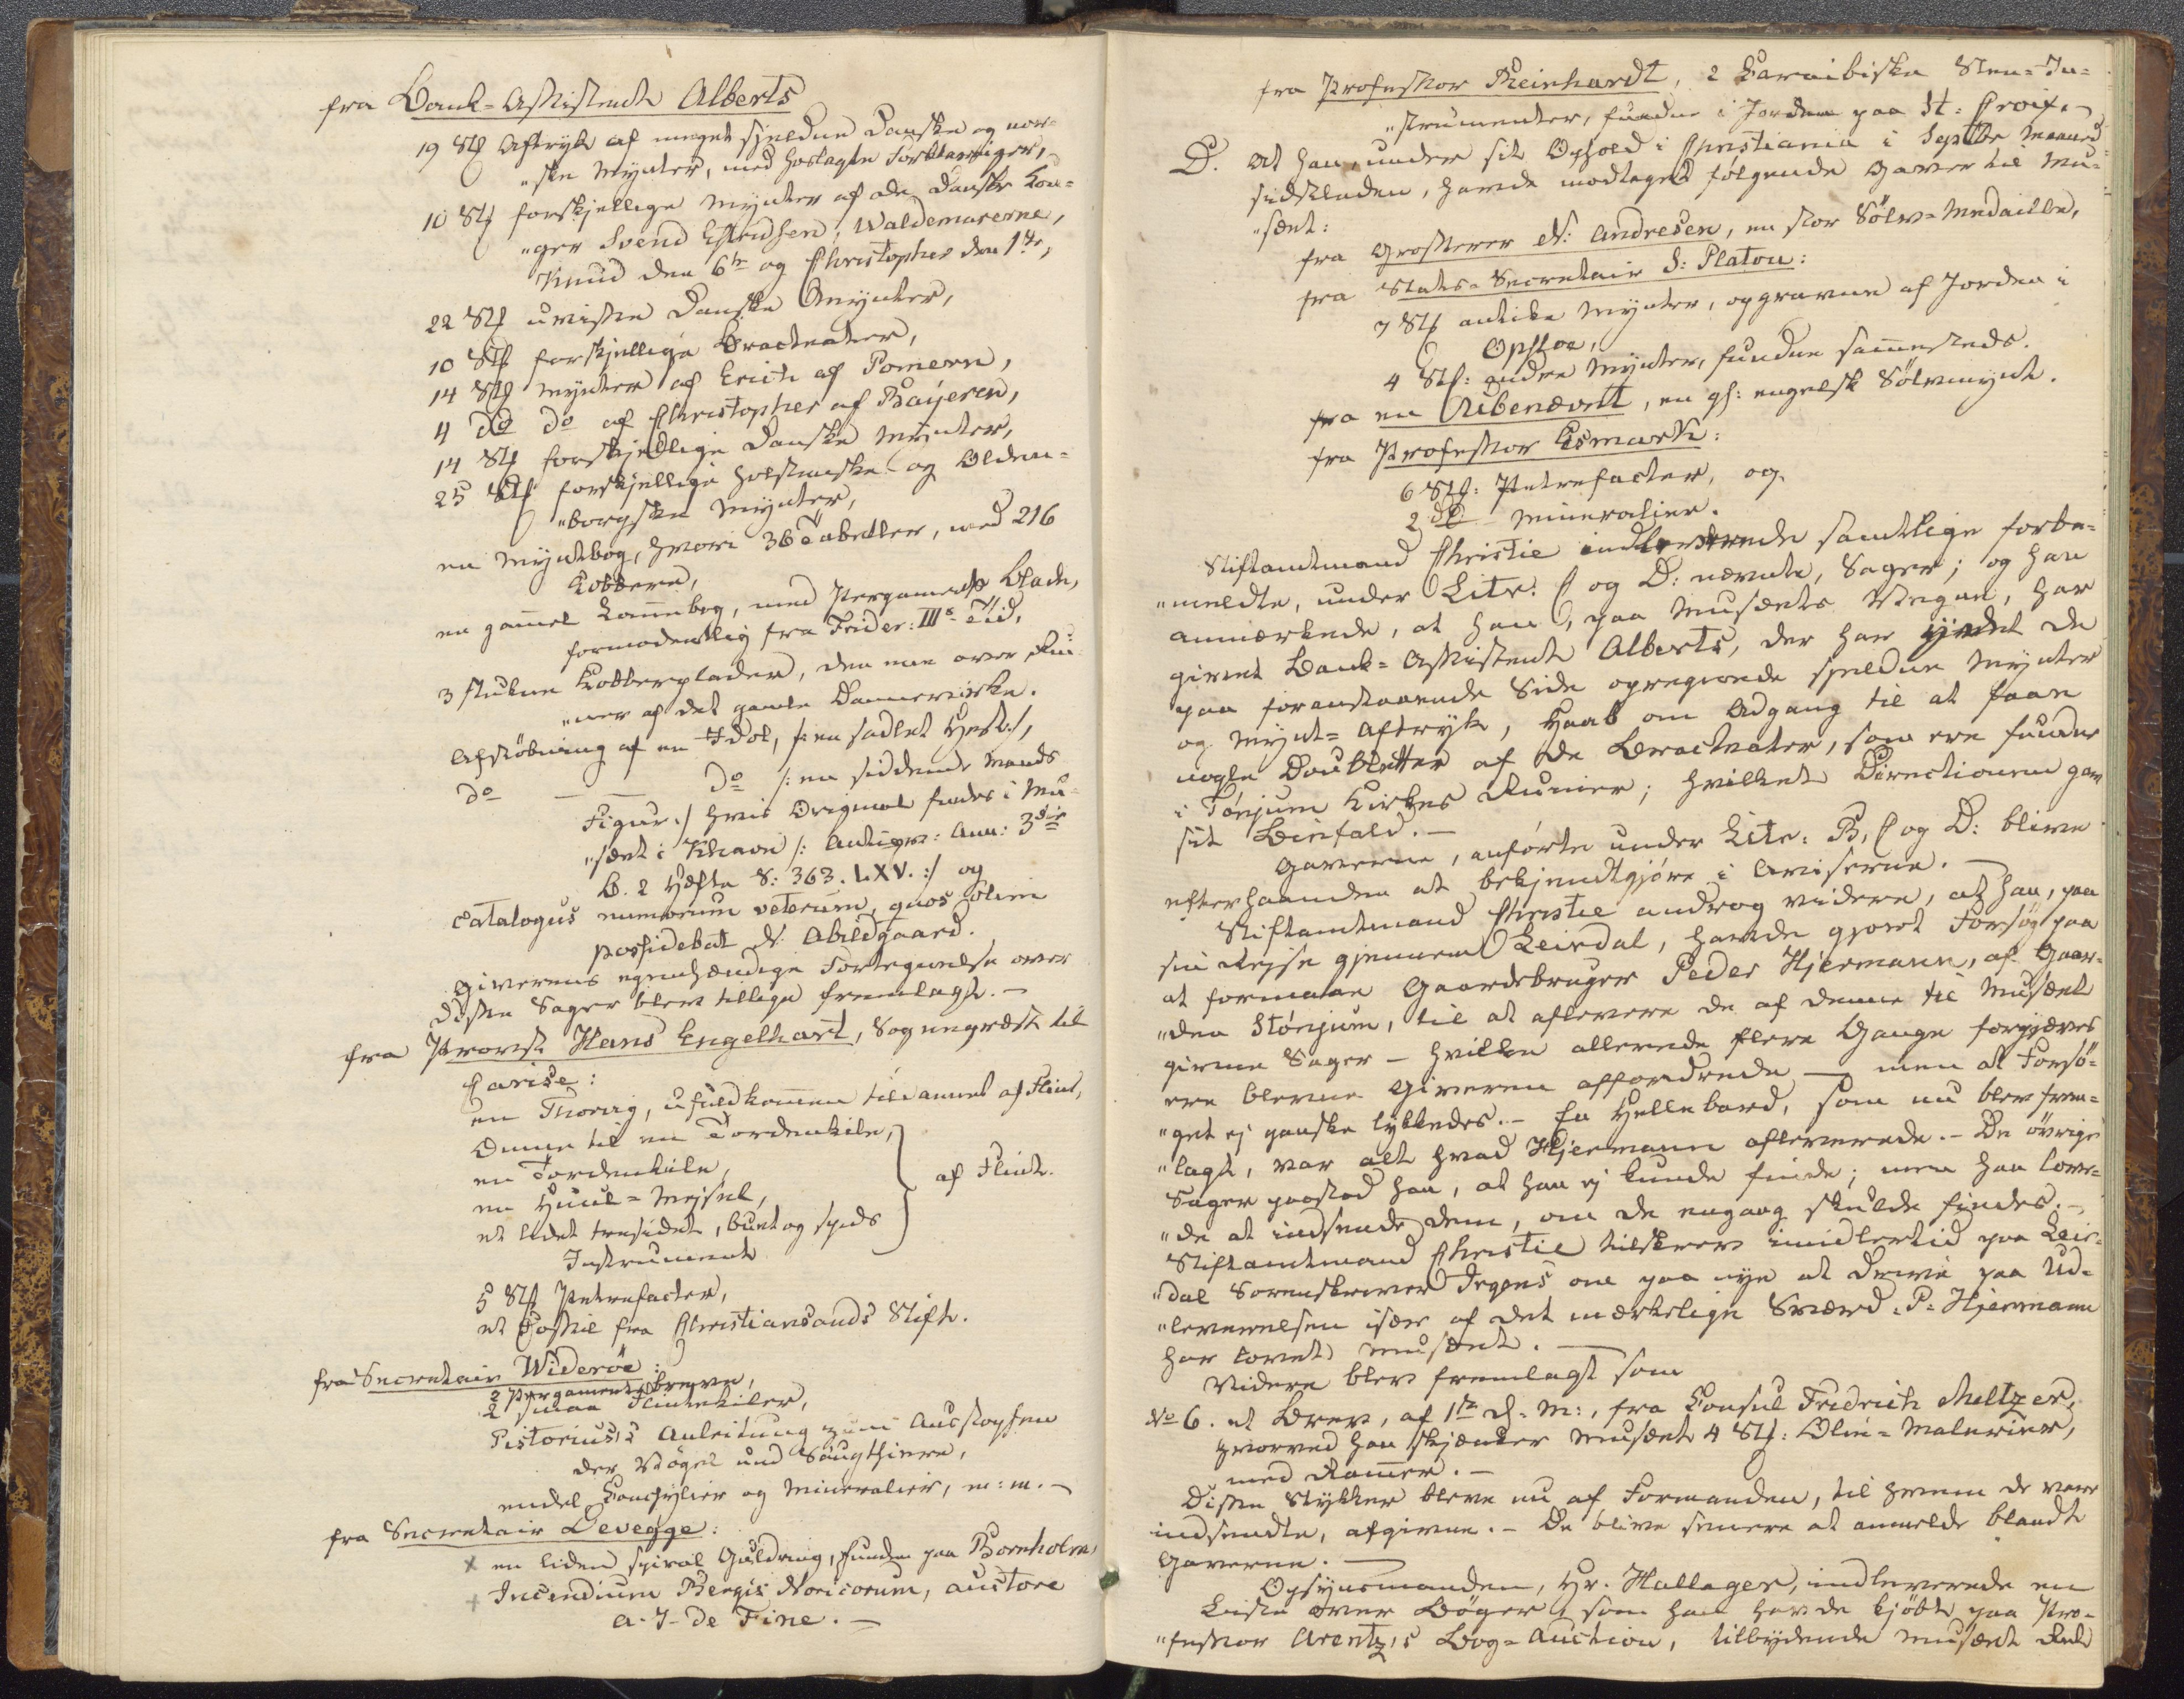 fra Bank-Assistent Alberts
19 Stk Aftryk af meget sjeldne Danske og nor-
"ske Mynter, med hoslagte Forklaringer,
10 Stk forskjellige Mynter af de Danske Kon-
"ger Svend Estridsen, Waldemarerne,
Knud den 6te og Christopher den 1te,
22 Stk uvisse Danske Mynter,
10 Stk forskjellige Bracteater,
14 Stk Mynter af Erich af Pomern,
4 do do af Christopher af Bayeren,
14 Stk forskjellige Danske Mynter,
25 Stk forskjellige holsteenske og Olden-
"borgske Mynter,
en Myntbog, hvori 36 Tabeller, med 216
Kobbere,
en gammel Lommebog, med Pergaments Blade,
formodentlig fra Frider: IIIs Tid,
3 stukne Kobberplader, den ene over Rui-
"ner af det gamle Dannevirke.
Afstöbning af en Idol, /: en sadlet Hest :/,
do — — do /: en siddende Mands
Figur :/ hvis Original findes i Mu-
"sæet i Kbhavn /: Antiqv: Ann: 3die
B. 2 Hefte S: 363. LXV. :/ og
Catalogus numorum veterum, quos olim
possidebat N. Abildgaard.
Giverens egenhændige Fortegnelse over
disse Sager blev tillige fremlagt. —
fra Provst Hans Engelhart, Sognepræst til
Carise:
en Thorvig, ufuldkommen tildannet af Flint,
Emne til en Tordenkile,
en Tordenkile,
en Huul-Meisel,
et lidet tresidet, buet og spids
Instrument
af Flint.
5 Stk Petrefacter,
et Fossil fra Christiansands Stift.
fra Secretair Widerøe:
2 Pergamentsbreve,
2 smaa Flintekiler,
Pistorius's Anleitung zum Ausstopfen
der Vögel und Säugthiere,
endel Conchylier og Mineralier, m: m. —
fra Secretair Levegge:
x en liden spiral Guldring, funden paa Bornholm,
x Incendium Bergis Noricorum, auctore
A. J. de Fine. —
fra Professor Reinhardt, 2 Caraibiske Sten-In-
"strumenter, fundne i Jorden paa St: Croix. —
D. At han, under sit Ophold i Christiania i Septbr Maaned
sidstleden, havde modtaget følgende Gaver til Mu-
"sæet:
fra Grosserer N: Andresen, en stor Sölv-Medaille,
fra Stats-Secretair S: Platou:
7 Stk antike Mynter, opgravne af Jorden i
Opsloe,
4 Stk: andre Mynter, fundne sammesteds.
fra en Ubenævnt, en gl: engelsk Sölvmynt.
fra Professor Esmark:
6 Stk: Petrefacter, og
2 do Mineralier.
Stiftamtmand Christie indleverede samtlige forbe-
"meldte, under Litr. C og D: nævnte, Sager; og han
anmærkede, at han, paa Musæets Vegne, har
givet Bank-Assistent Alberts, der har ydet de
paa foranstaaende Side opregnede sjeldne Mynter
og Mynt-Aftryk, Haab om Adgang til at faae
nogle Doubletter af de Bracteater, som ere fundne
i Tönjum Kirkes Ruiner; hvilket Directionen gav
sit Beifald. —
Gaverne, anförte under Litr: B, C og D: blive
efterhaanden at bekjendtgjöre i Aviserne. —
Stiftamtmand Christie androg videre, at han, paa
sin Rejse gjennem Leirdal, havde gjort Forsög paa
at formaae Gaardsbruger Peder Hjermann, af Gaar-
"den Stönjum, til at aflevere de af denne til Musæet
givne Sager — hvilke allerede flere Gange forgjæves
ere blevne Giveren affordrede — men at Forsö-
"get ej ganske lykkedes. — En Hellebard, som nu blev frem-
"lagt, var alt hvad Hjermann afleverede. — De övrige
Sager paastod han, at han ej kunde finde; men han love-
"de at indsende dem, om de engang skulde findes. —
Stiftamtmand Christie tilskrev imidlertid paa Leir-
"dal Sorenskriver Irgens om paa nye at drive paa Ud-
"leverelsen især af det mærkelige Sværd, P. Hjermann
har lovet Musæet. —
Videre blev fremlagt som
No 6. et Brev, af 1ste d. M:, fra Consul Fredrich Meltzer,
hvorved han skjænker Musæet 4 Stk: Olie-Malerier,
med Rammer. —
Disse Stykker bleve nu af Formanden, til hvem de vare
indsendte, afgivne. — De blive senere at anmelde blandt
Gaverne. —
Opsynsmanden, Hr. Hallager, indleverede en
Liste over Böger, som han havde kjöbt paa Pro-
"fessor Arentz's Bog-Auction, tilbydende Musæet Ret